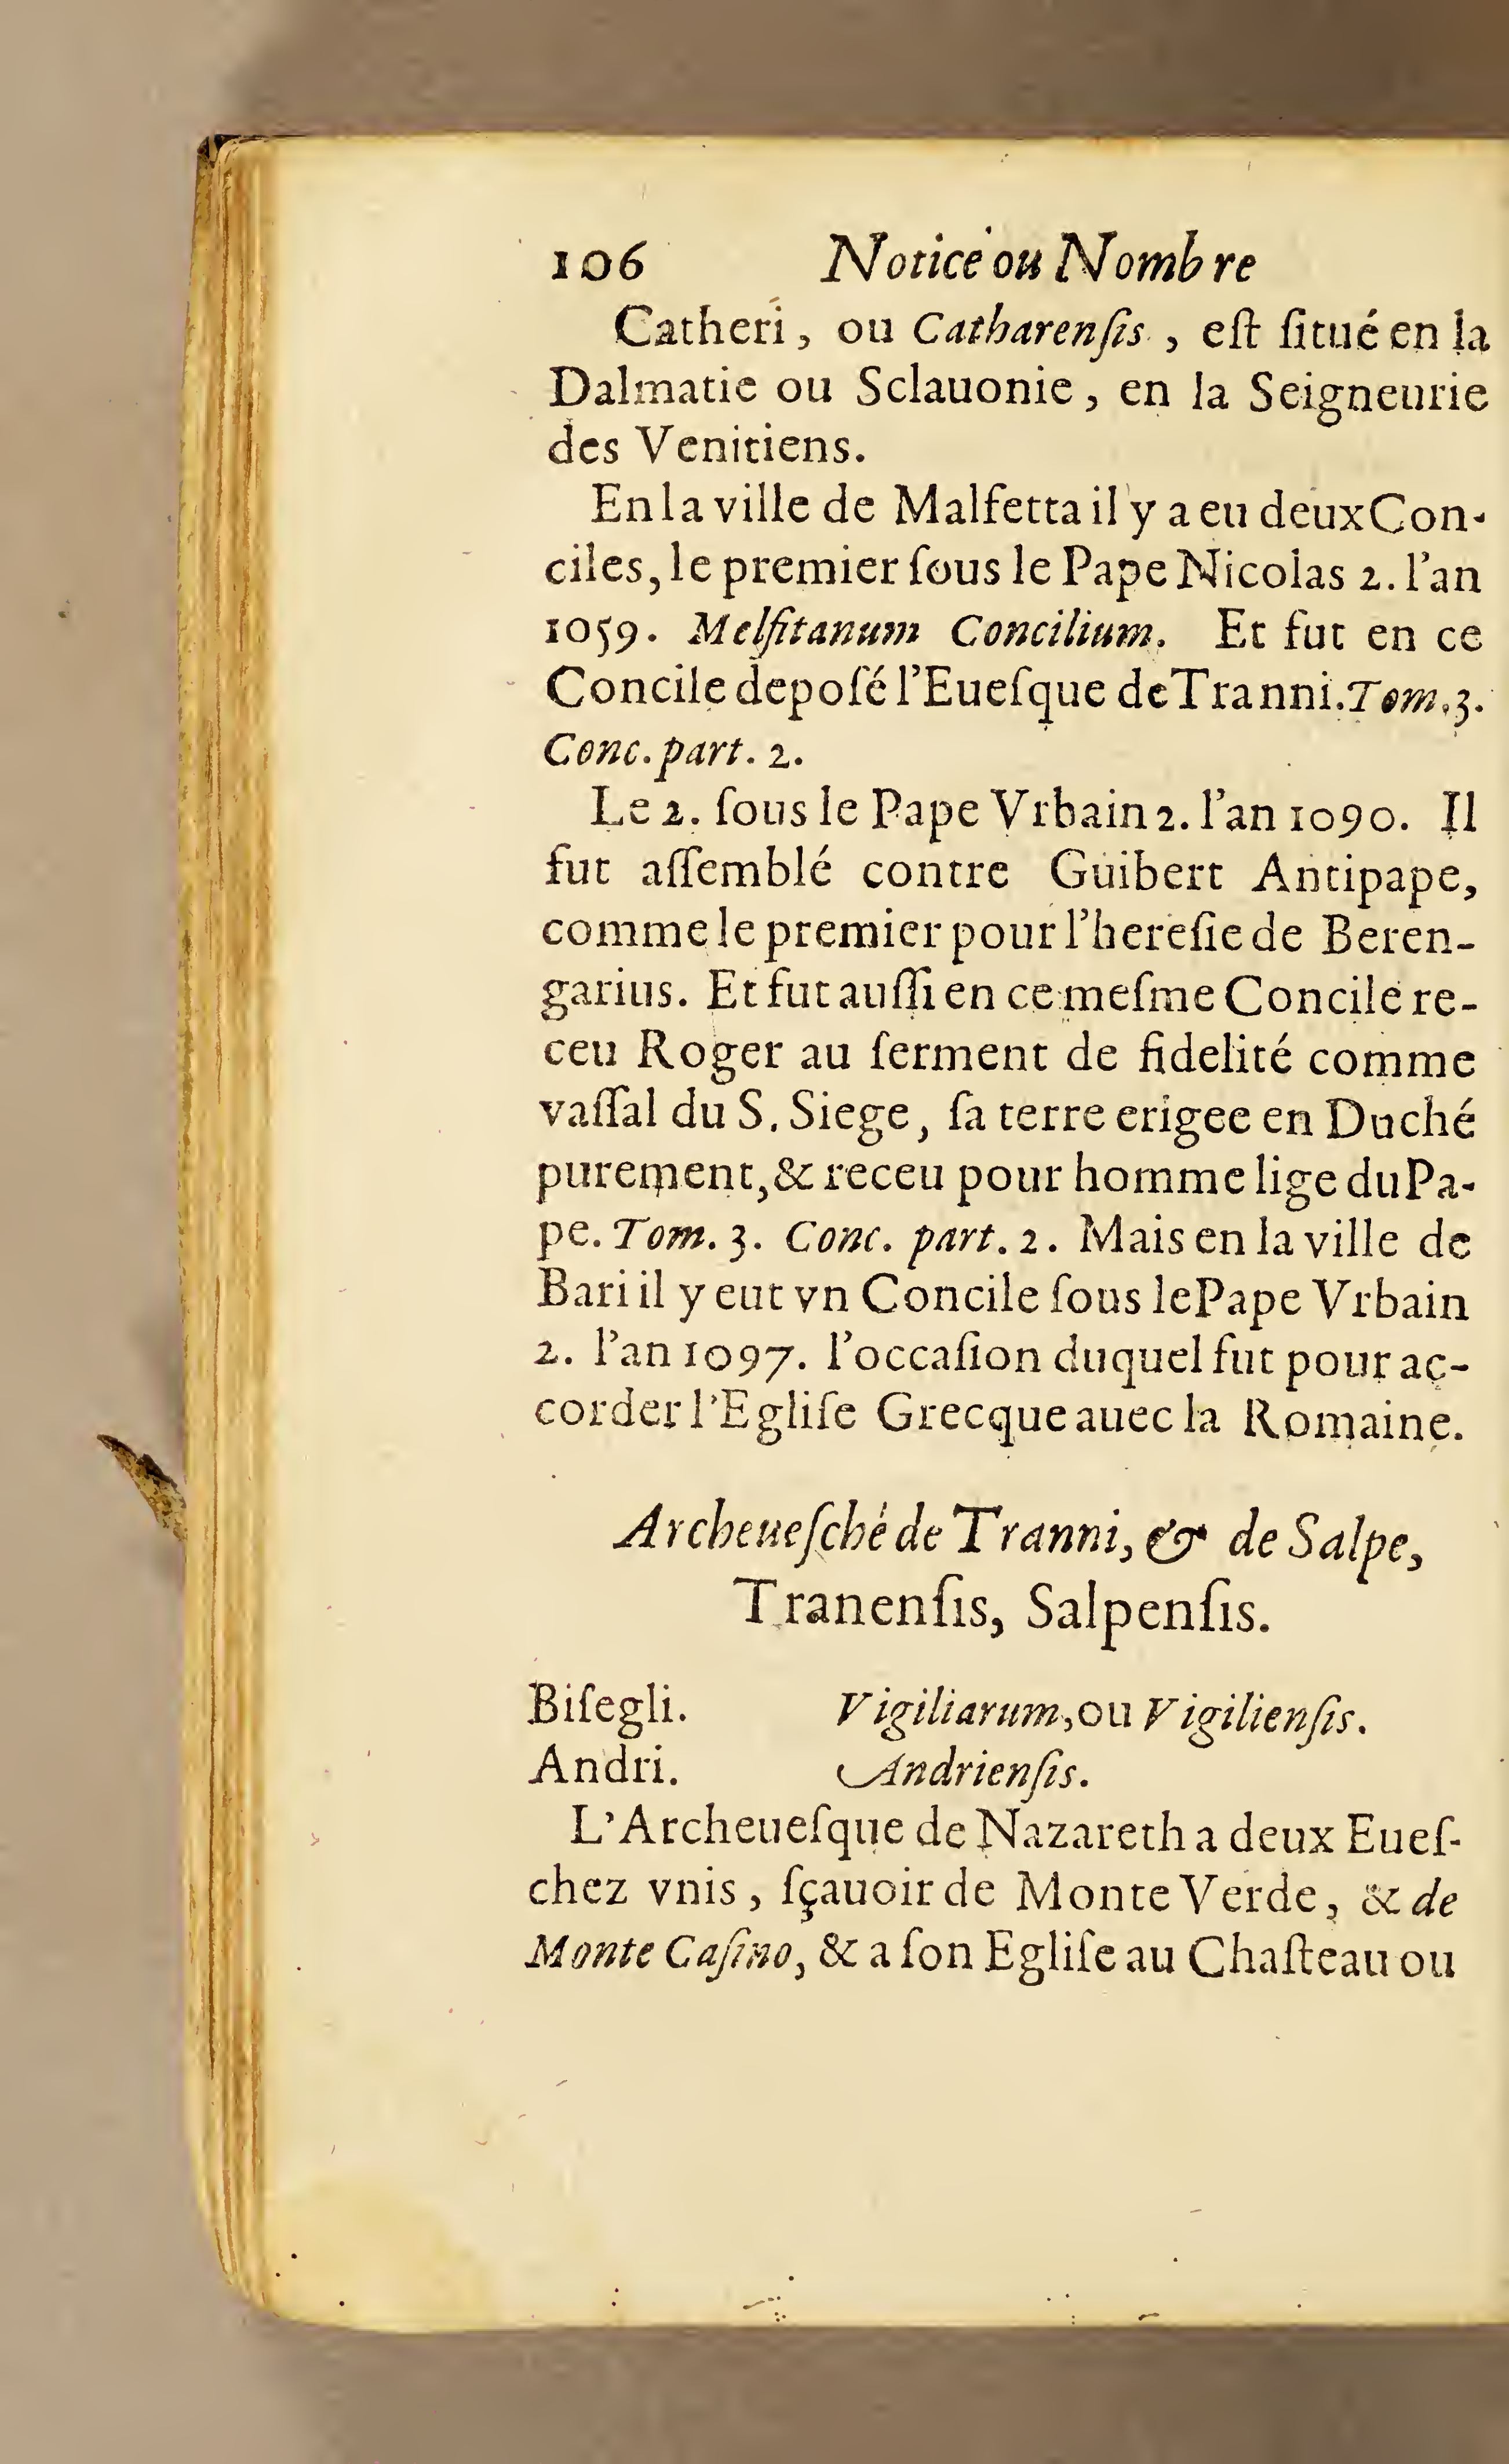 106 Notice ou Nombre
Catheri, ou Catharenſis, eſt ſitué en la
Dalmatie ou Sclauonie, en la Seigneurie
des Venitiens.
En la ville de Malfetta il y a eu deux Con-
ciles, le premier ſous le Pape Nicolas 2. l'an
1059. Melfitanum Concilium. Et fut en ce
Concile depoſé l'Eueſque de Tranni. Tom. 3.
Conc. part. 2.
Le 2. ſous le Pape Vrbain 2. l'an 1090. Il
fut aſſemblé contre Guibert Antipape,
comme le premier pour l'hereſie de Beren-
garius. Et fut auſſi en ce meſme Concile re-
ceu Roger au ſerment de fidelité comme
vaſſal du S. Siege, ſa terre erigee en Duché
purement, & receu pour homme lige du Pa-
pe. Tom. 3. Conc. part. 2. Mais en la ville de
Bari il y eut vn Concile ſous le Pape Vrbain
2. l'an 1097. l'occaſion duquel fut pour ac-
corder l'Egliſe Grecque auec la Romaine.
Archeueſché de Tranni, & de Salpe,
Tranenſis, Salpenſis.
Biſegli. Vigiliarum, ou Vigilienſis.
Andri. Andrienſis.
L'Archeueſque de Nazareth a deux Eueſ-
chez vnis, ſçauoir de Monte Verde, & de
Monte Caſino, & a ſon Egliſe au Chaſteau ou